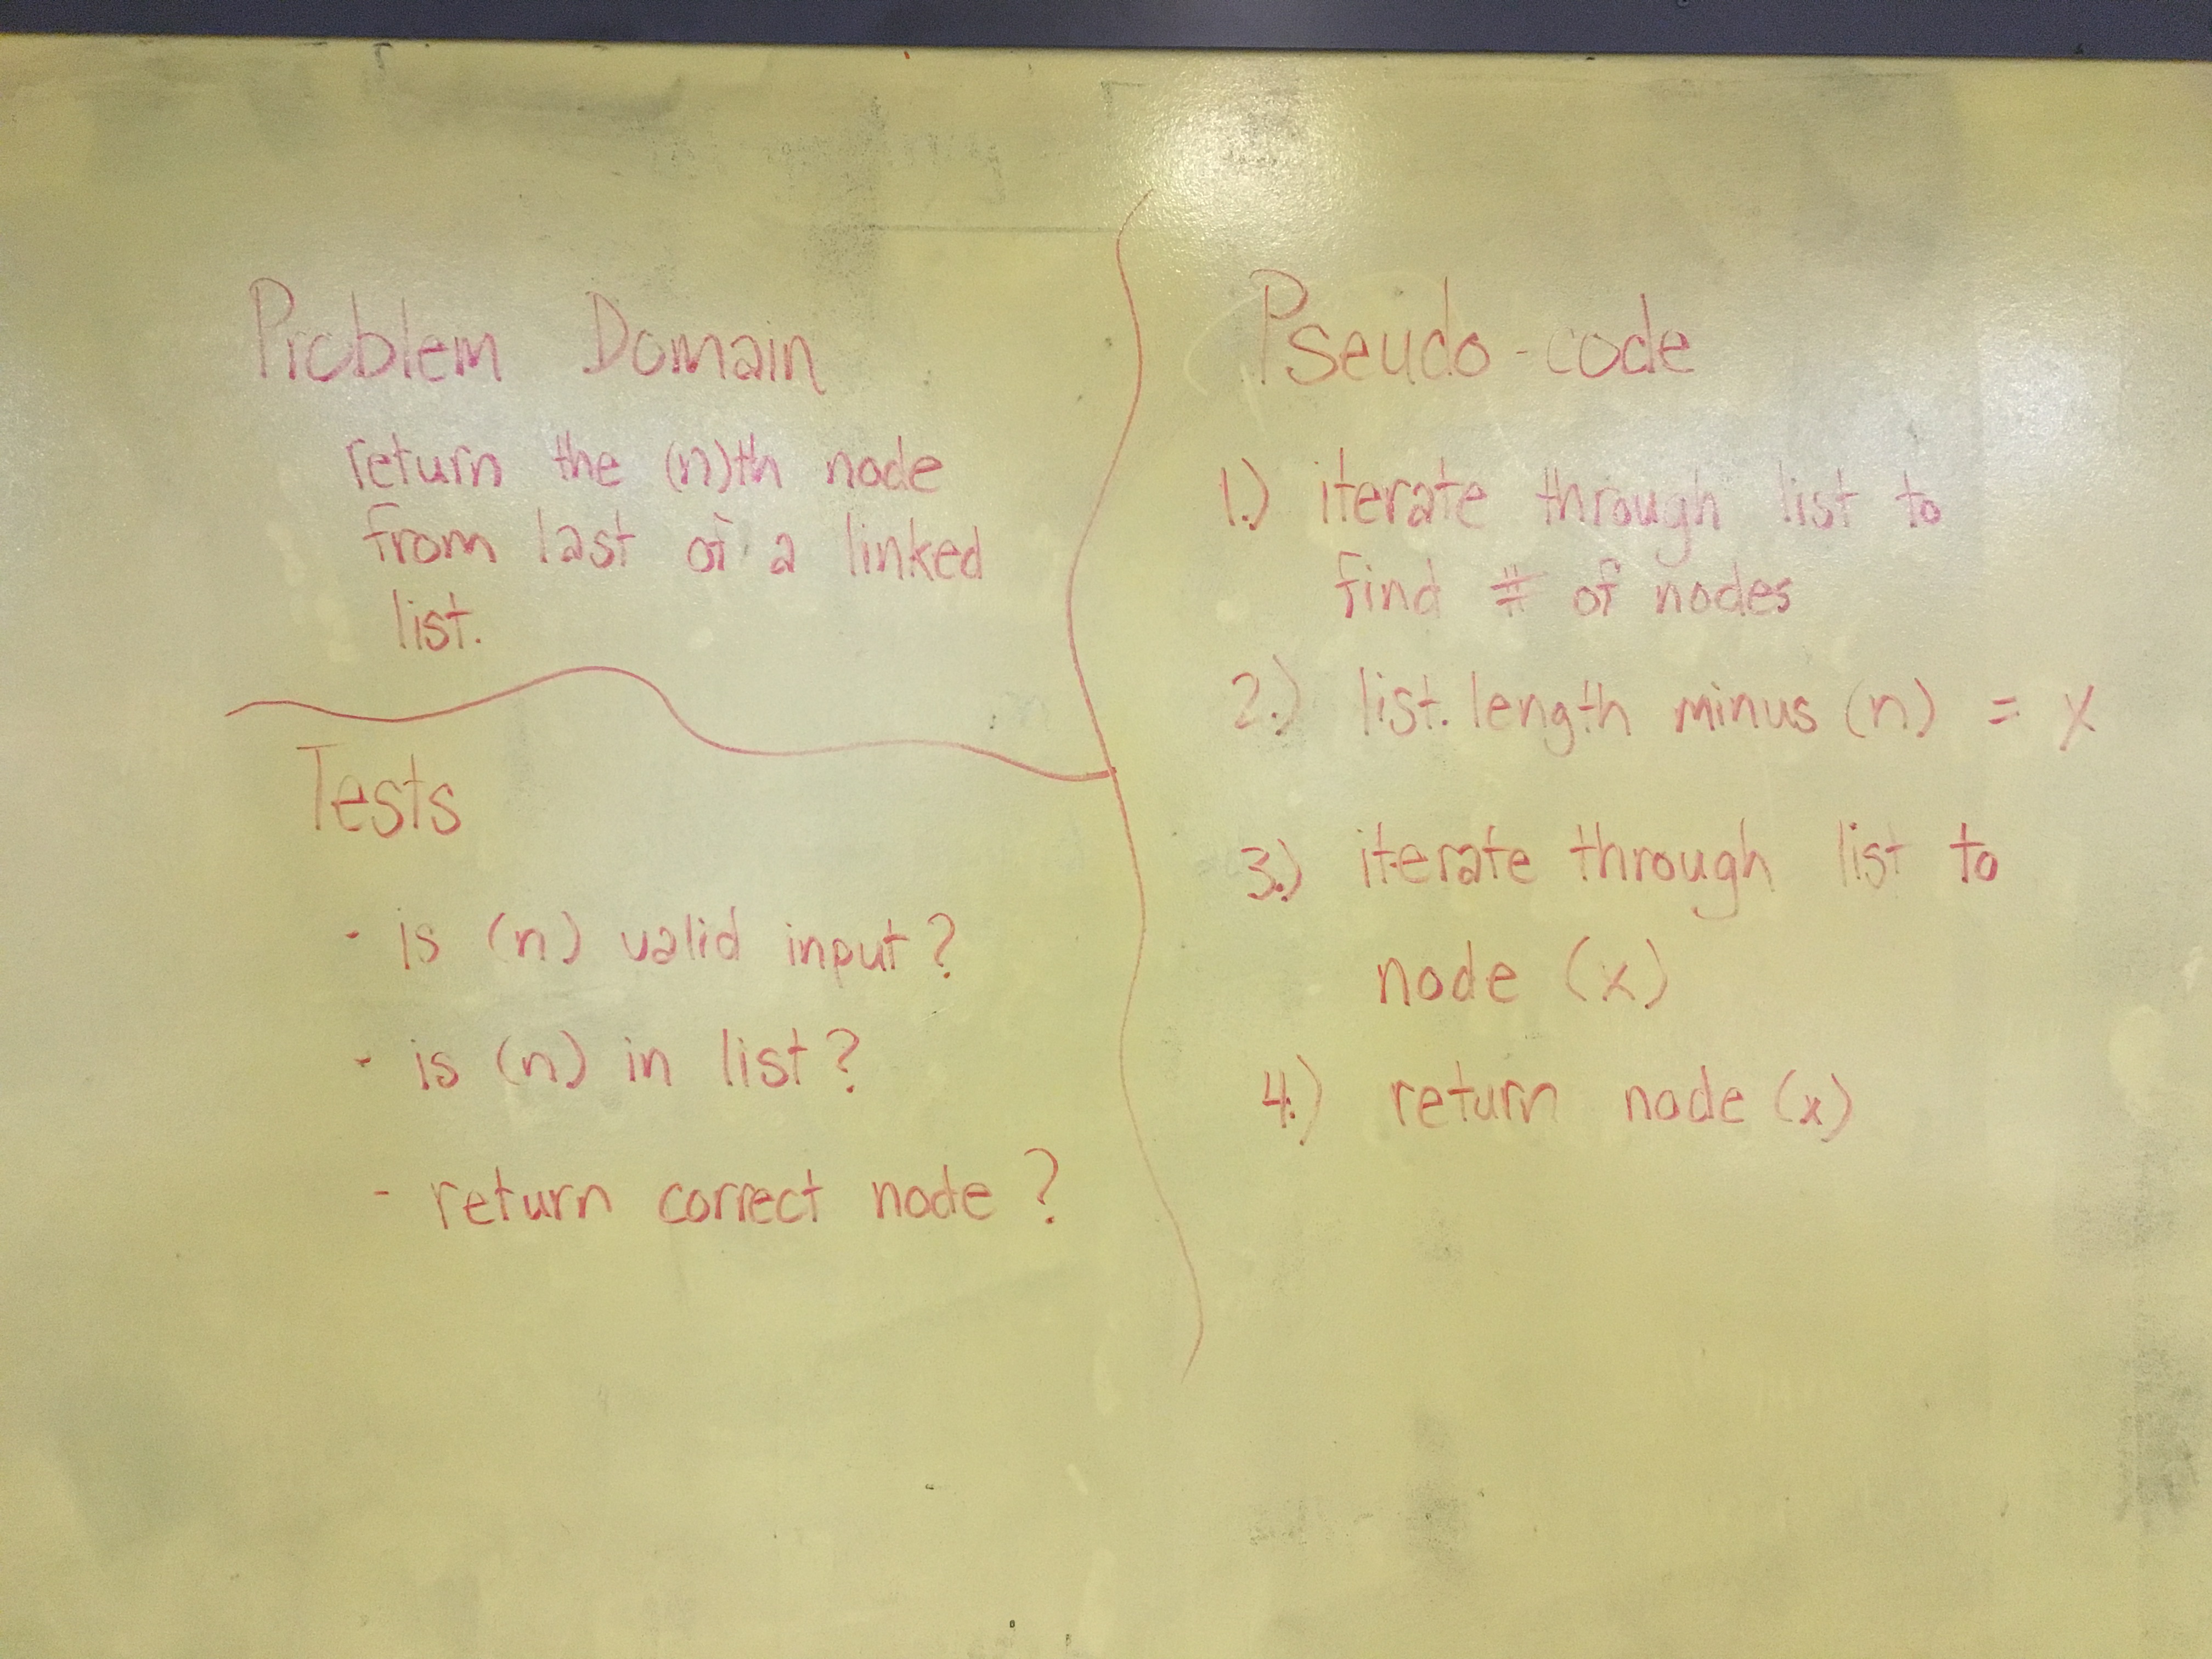 Problem Domain
return the (n)th node
from last of a linked
list.
Tests
- is (n) valid input?
- is (n) in list?
- return correct node?
Pseudo-code
1.) iterate through list to
find # of nodes
2.) list.length minus (n) = x
3.) iterate through list to
node (x)
4.) return node (x)